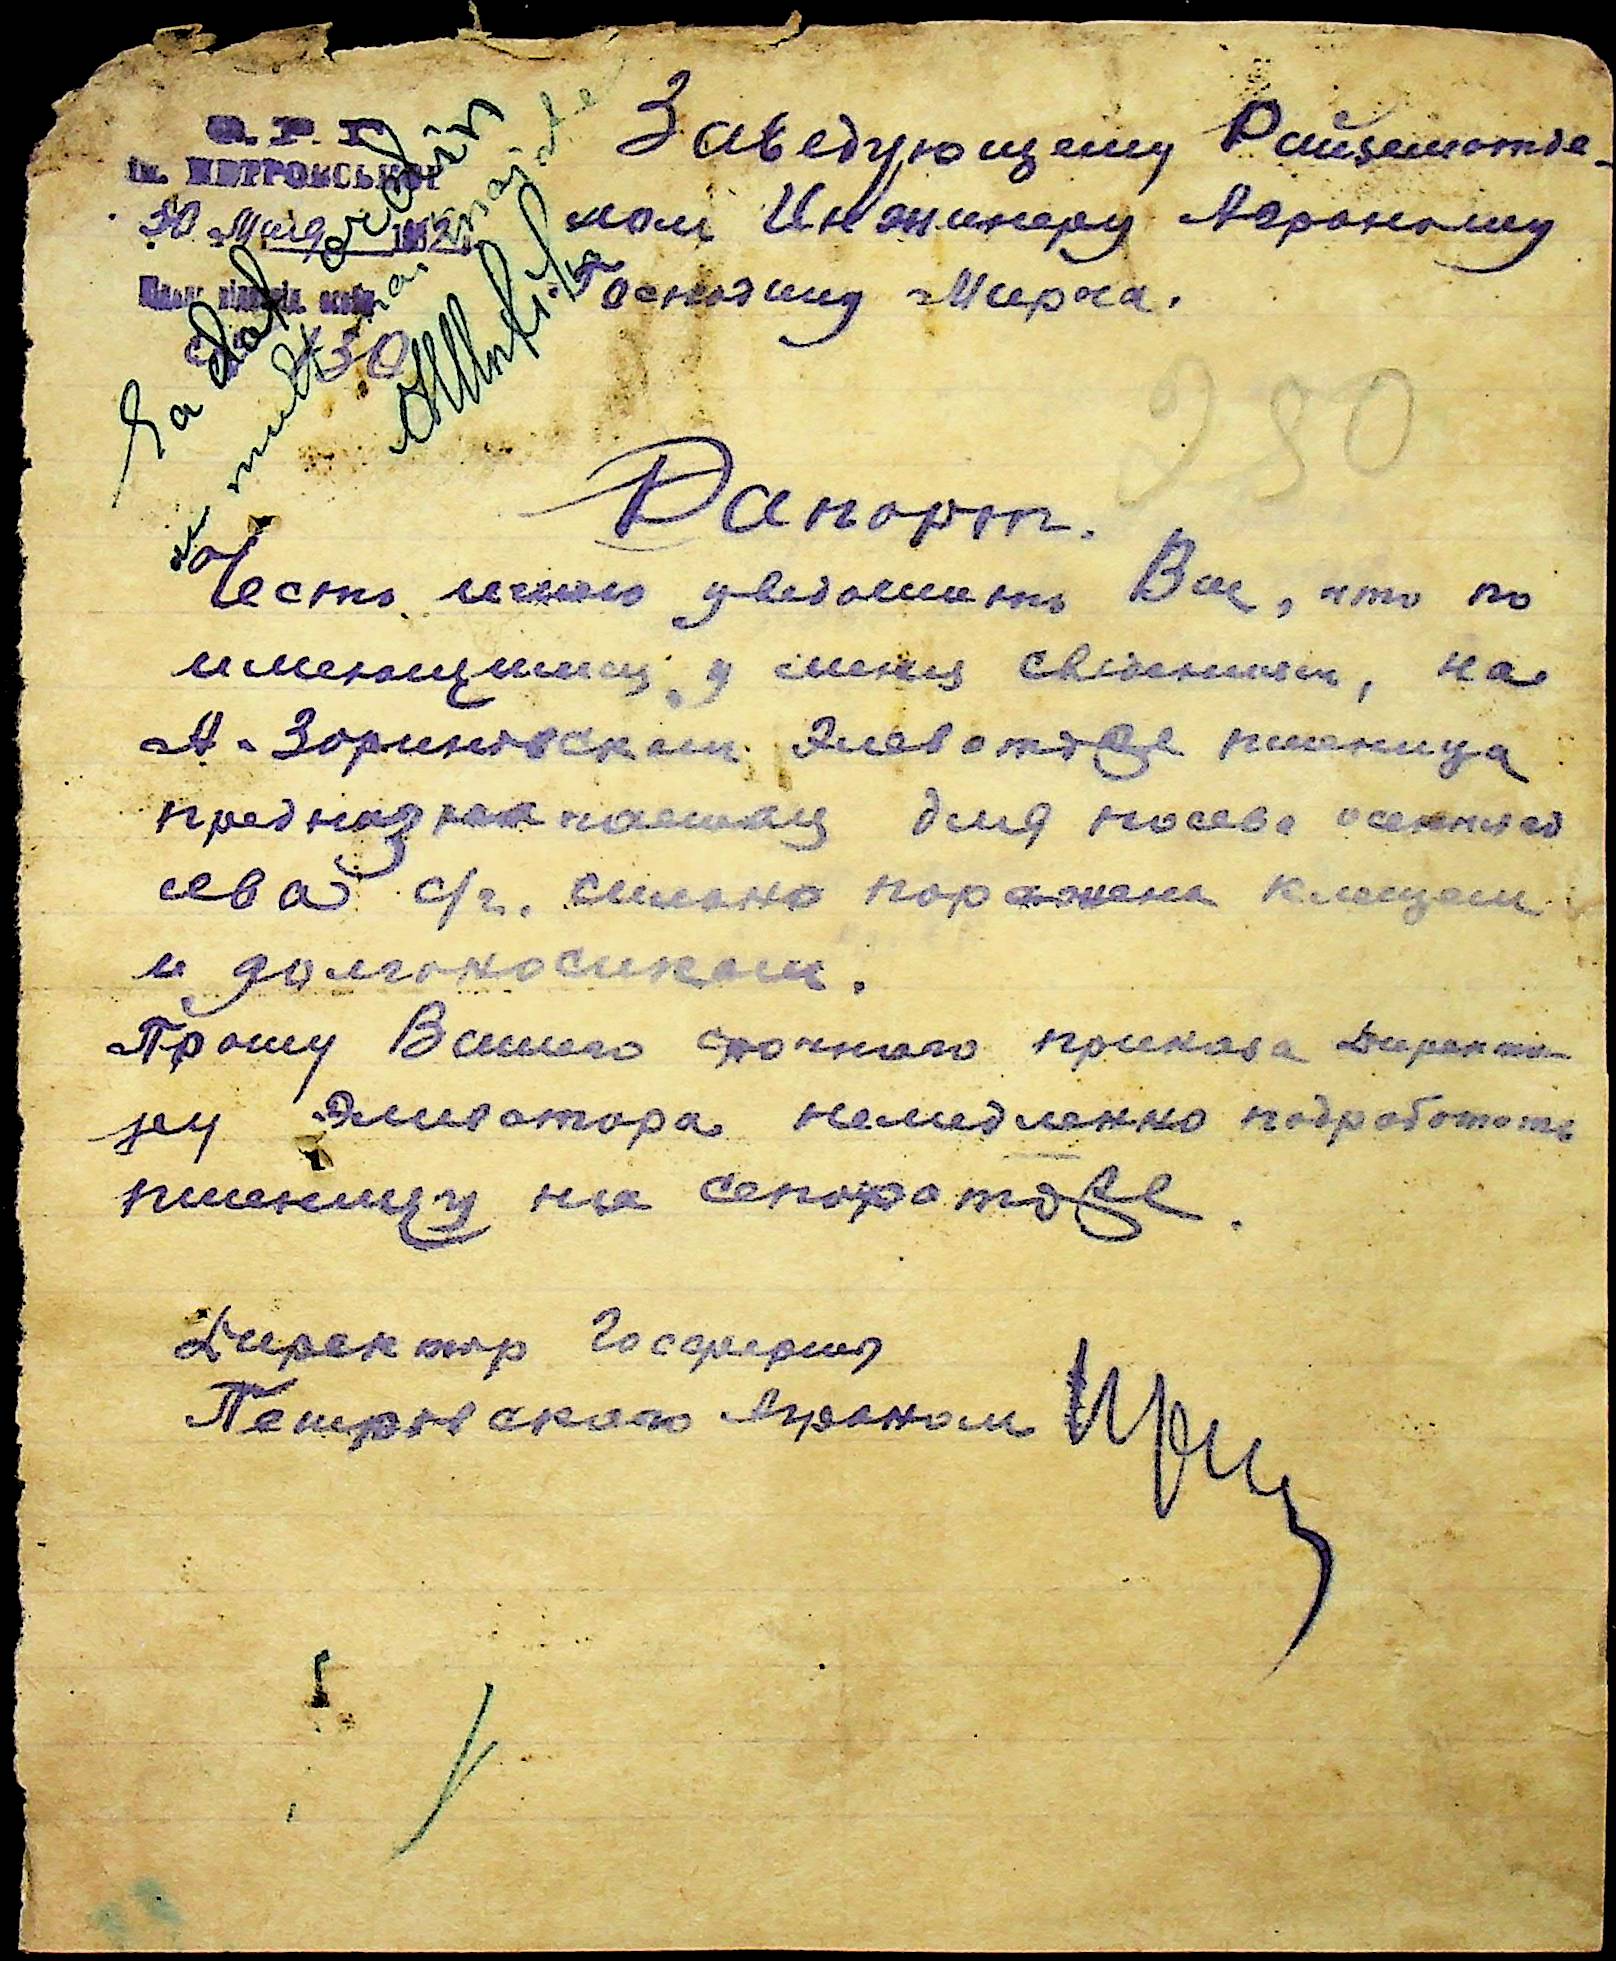 Ф. Р. Г.
ім. ПЕТРОВСЬКОГ
30 Мая 1942
130
S'a dat ordin
Заведующему Райземотде-
лом Инжинеру Агроному
Господину Мирча.
280
Рапорт.
Честь имею уведомить Вас, что по
имеющимиц у меня сведениям, на
А-Зориновском Элеваторе пшеница
предназначаемая для посева осеннего
сева с/г. сильно поражена клещем
и долгоносиком.
Прошу Вашего срочного приказа Директо-
ру Элеватора немедленно подработать
пшеницу на сепораторе.
Директор Госфермы
Петровского Агроном